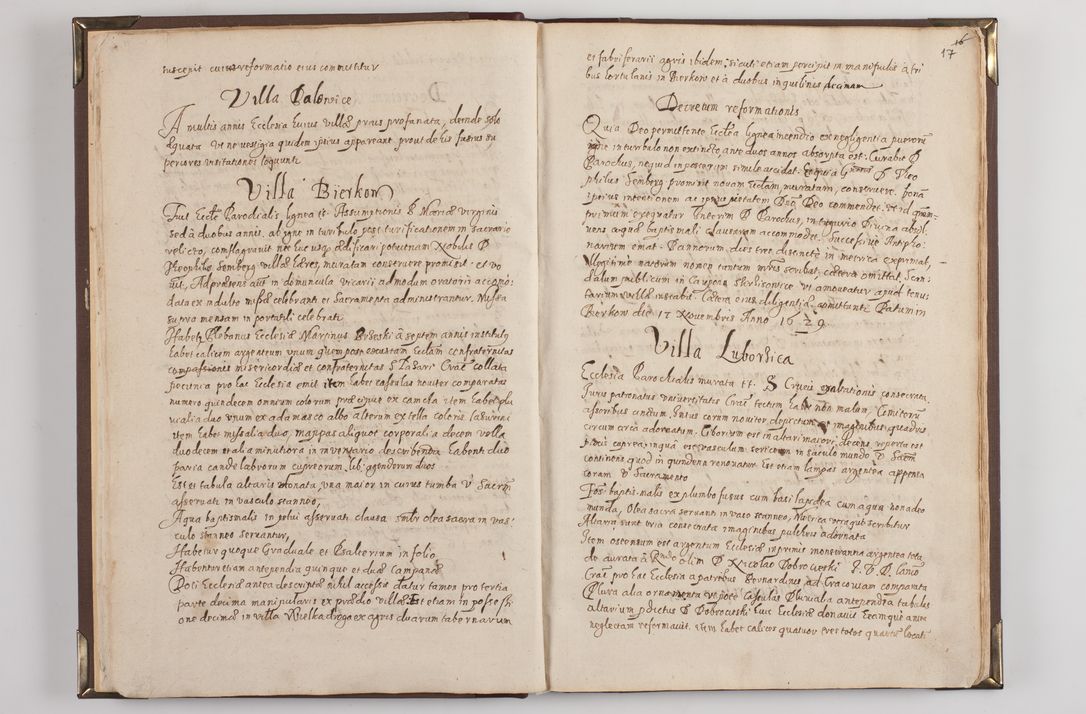 suscepit cuius reformatio eius committitur
Villa Palonice
A multis annis Ecclesia huius villæ prius profanata, deinde solo
æquata ut ne vestigia quidem ipsius appareant, prout de his fusius su
periores visitationes loquunt.
Villa Bierkow
Fuit Eccle Parochialis lignea tt. Assumptionis B Mariæ virginis
sed à duobus annis, ab igne in turibulo post turificationem in sacrario
relicto, conflagravit nec huc usq ædificari potuit nam Nobilis D
Theophilus Szemberg villæ hæres, muratam construere promisit et vo
vit, Ad præsens aut in domuncula vicarii ad modum oratorii accomo
data ex indulto missæ celebrantr et Sacramenta administrantur. Missa
supra mensam in portatili celebratr
Habet Plebanus Ecclesiæ Martinus Brzeski à septem annis institutus
habet calicem argenteum unum quem post exustam Ecclam confraternitas
compassionis misericordiæ et confraternitas S Lazari Crac collata
pecunia pro hac Ecclesia emit item habet casulas noviter comparatas
numero quindecem omnium colorum præcipue ex camcha item habet plu
vialia duo unum ex adamasco albo alterum ex tella coloris lazurini
item habet missalia duo, mappas aliquot corporalia decem vella
duodecem et alia minutiora in inventario describenda habentr duo
paria candelabrorum cupreorum, lib. agendorum duos
Est et tabula altaris donata, una maior in cuius tumba V Sacrm
asservatr in vasculo stanneo,
Aqua baptismalis in fossu asservatr clausa similr olea sacra in vas
culo stanneo servantur,
Habetur quoque Graduale et Psalterium in folio
Habentur etiam antependia quinque et duæ Campanæ
Doti Ecclesiæ antea descriptæ nihil accessit datur tamen pro tertia
parte decima manipularis ex prædio villæ Est etiam in possessi
one decimæ in villa Wielka droga ex agris duarum tabernarum
17 16
et fabri ferarii agris ibidem, sicuti etiam percipit in manipulis à tri
bus hortulanis in Bierkow et à duobus inquilinis decimam
Decretum reformationis
Quia Deo permittente Eccla lignea incendio ex negligentia puerorum
igne in turibulo non extincto, ante duos annos absorpta est. Curabit D
Parochus, ne quid in posterum simile accidat. Et quia Gnosus D Theo
philus Szemberg promisit novam Ecclam, muratam, construere, bonam
ipsius intentionem ac pietatem Dno Deo commendet, et id quam
primum exequatur Interim D Parochus, in tugurio Divina absol
vens aquæ baptismali clausuram accommodet. Successive Antipho
narium emat. Bannorum, dies tres distincte in metrica exprimat,
Illegitime natorum nomen tantum mris scribat, cætera omittat, Scan
dalum publicum in Caupona Skrlisovice ut amoveatur apud tenu
tarium villæ instabit. Cætera eius diligentiæ comittuntr. Datum in
Bierkow die 17 Novembris Anno 1629.
Villa Luborzica
Ecclesia Parochialis murata tt. S Crucis exaltationis consecrata,
Iuris patronatus universitatis Crac tectum habet non malum, Comitorium
asseribus cinctum. Intus corum noviter depictum et imaginibus quadris
circum circa adornatum. Ciborium est in altari maiori decens reperta est
pixis cuprea in qua est vasculum sericeum in sacculo mundo V Sacm
continens quod in quindena renovatur. Est etiam lampas argentea appensa
coram V Sacramento
Fos baptismalis ex plumbo fusus cum basi lapidea cum aqua non adeo
munda, Olea sacra servantr in vaso stanneo, Metrica utraque scribitur
Altaria sunt tria consecrata imaginibus pulchris adornata
Item ostensum est argentum Ecclesiæ in primis monstrantia argentea tota
de aurata à Rndo olim D Nicolao Dobrocieski I. V. D. Canco
Crac pro hac Ecclesia a patribus Bernardinis ad Cracoviam comparata
Plura alia ornamenta ut pote Casulas Pluvialia antependia tabulas
altarium pdictus D Dobrocieski huic Ecclesiæ donavit Eamque antea
neglectam reformavit. item habet calices quatuor tres totos quartus locatr